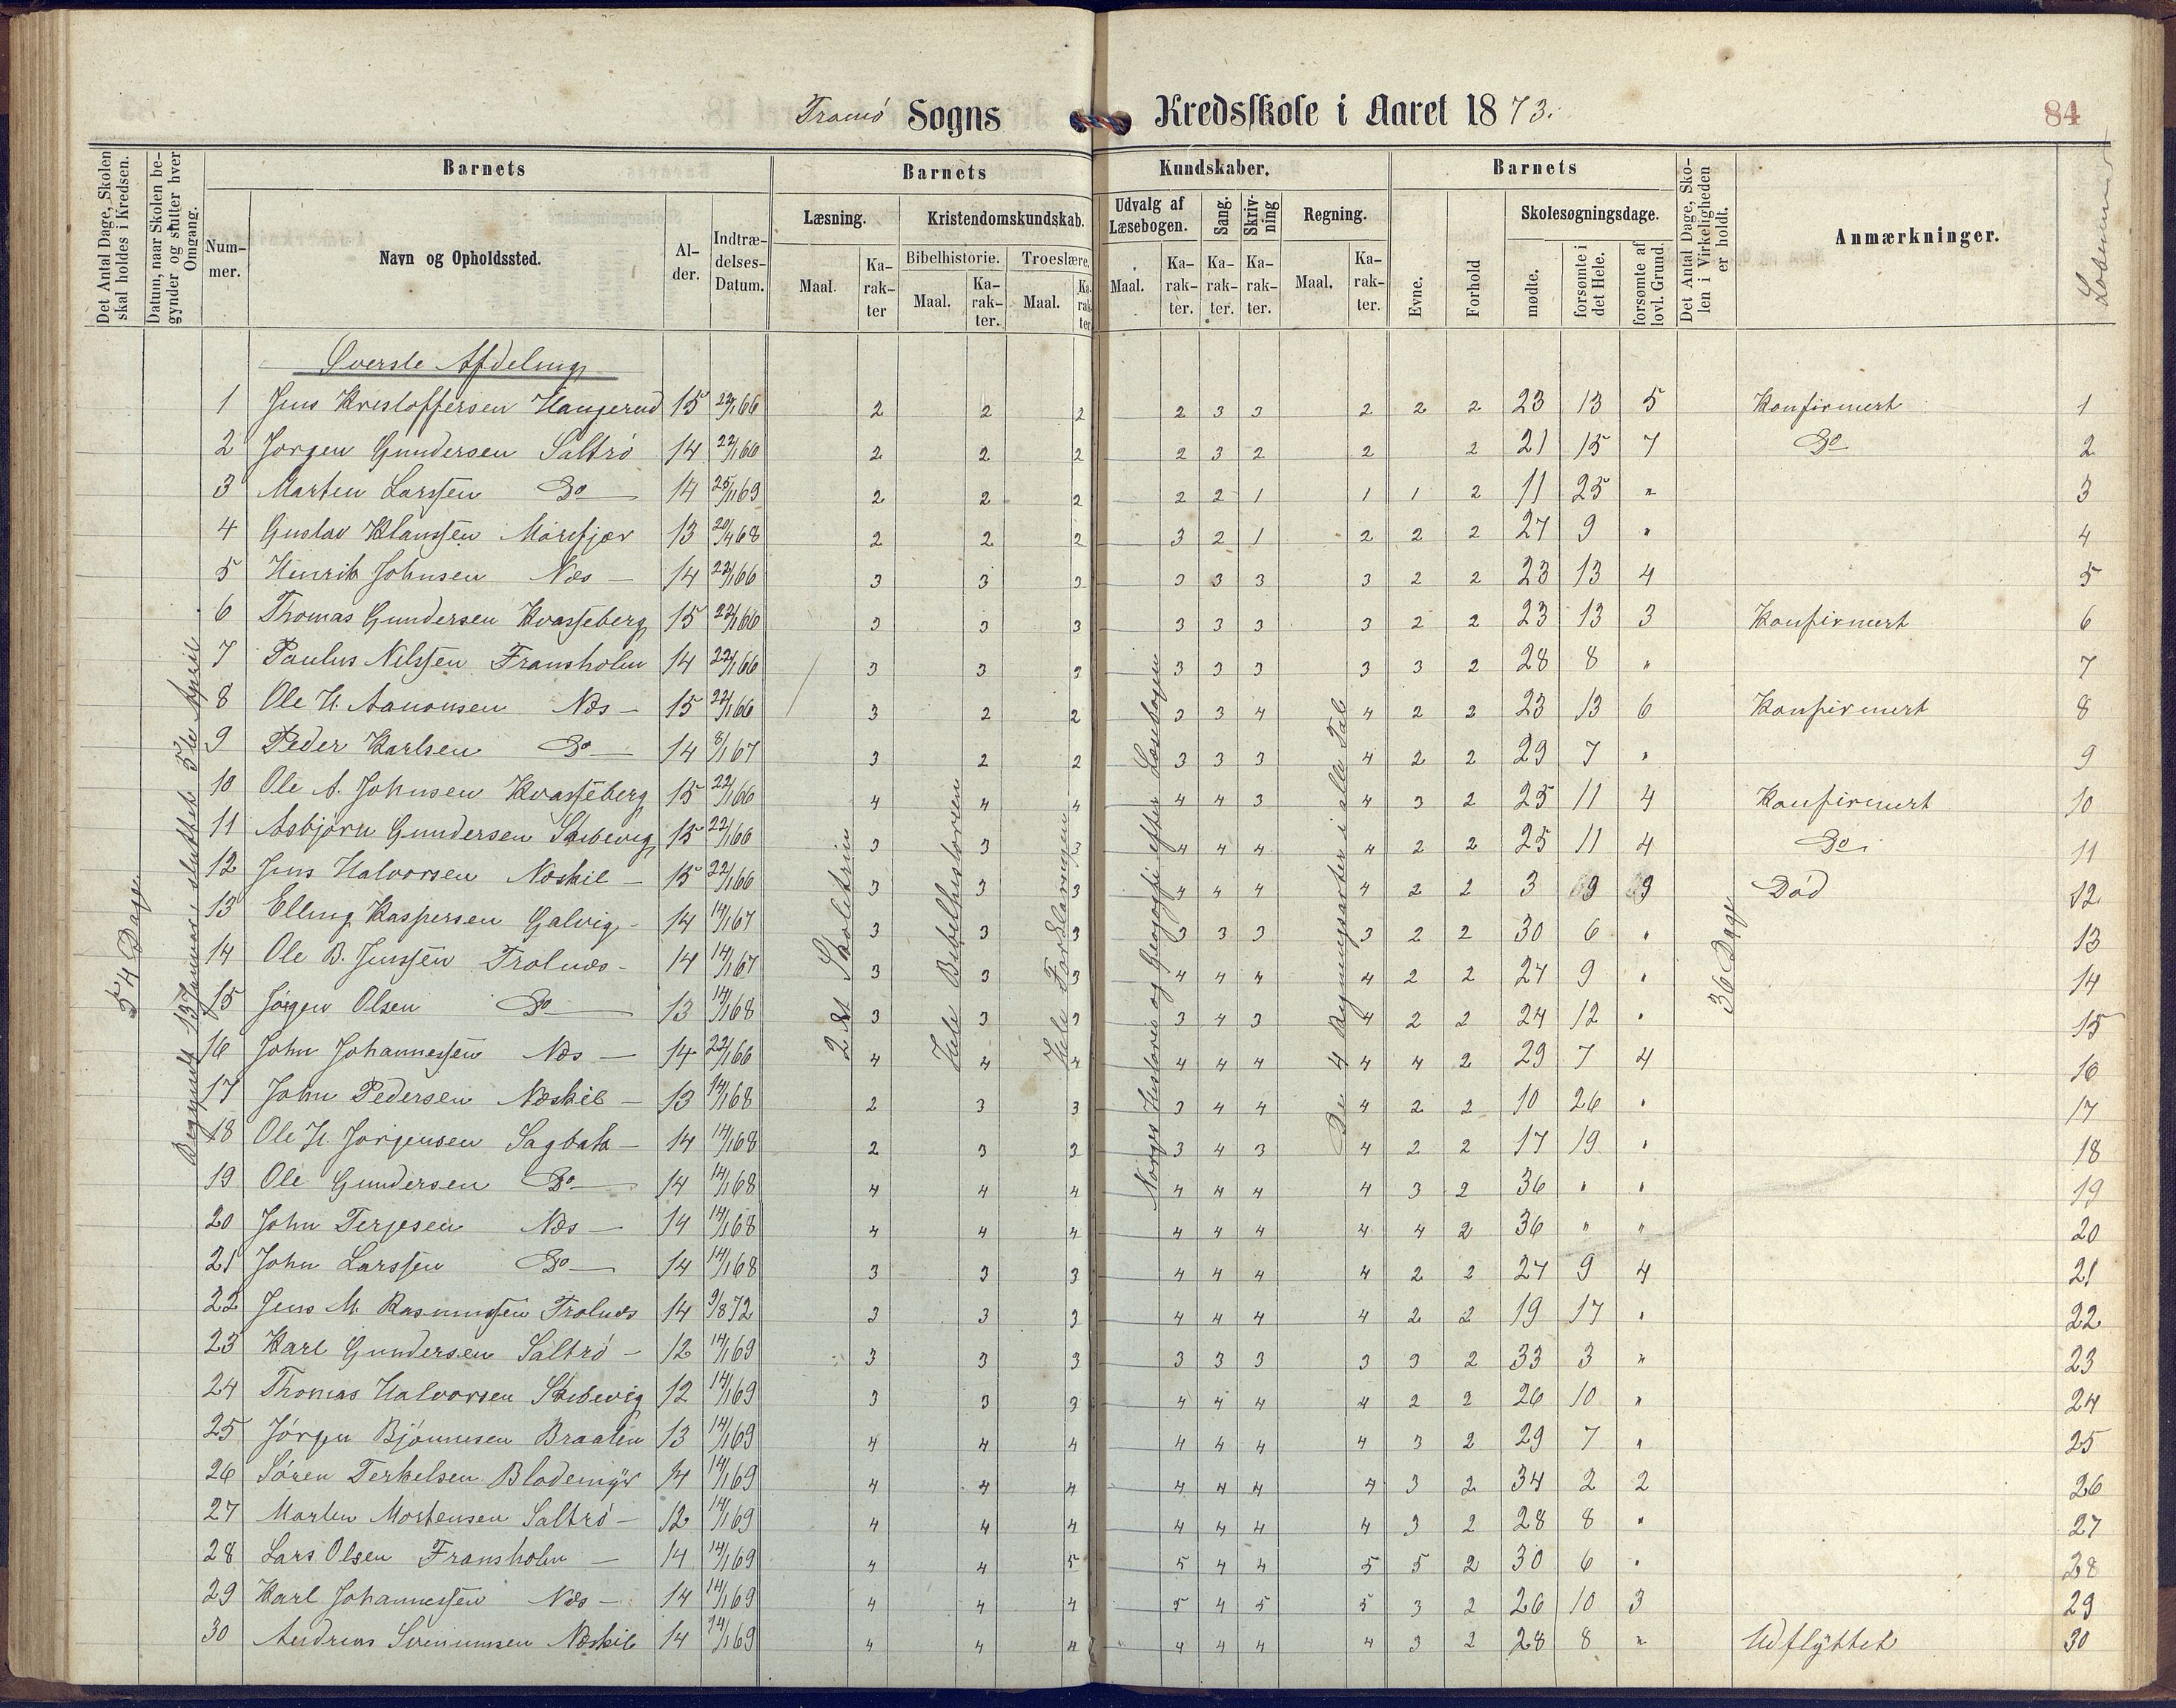 Tromö Sogns Kredsskole i Aaret 1873.
84
Det Antal Dage, Skolen skal holdes i Kredsen.
Datum, naar Skolen begynder og slutter hver Omgang.
Barnets
Nummer.
Navn og Opholdssted.
Alder.
Indtrædelses-Datum.
Barnets Kundskaber.
Læsning.
Maal.
Karakter
Kristendomskundskab.
Bibelhistorie.
Maal.
Karakter.
Troeslære.
Maal.
Karakter
Udvalg af Læsebogen.
Maal.
Karakter.
Sang.
Karakter.
Skrivning
Karakter.
Regning.
Maal.
Karakter.
Barnets
Evne.
Forhold
Skolesøgningsdage.
mødte.
forsømte i det Hele.
forsømte af lovl. Grund.
Det Antal Dage, Skolen i Virkeligheden er holdt.
Anmærkninger.
Löbenummer
54 Dage
Begyndt 13 Januar, sluttet 5te April
2det Læsetrin
Hele Bibelhistorien
Hele Forklaringen
Norges Historie og Geografi efter Læsebogen
De 4 Regningsarter i hele Tal
36 Dage
Överste Afdeling
1 Jens Kristoffersen Haugerud 15 22/1 66 2 2 2 2 3 3 2 2 2 23 13 5 Konfirmert 1
2 Jörgen Gundersen Saltrö 14 22/1 66 2 2 2 2 3 2 2 2 21 15 7 Do 2
3 Marten Larssen Do 14 25/11 69 2 2 2 2 2 1 1 1 2 11 25 " 3
4 Gustav Klaussen Mörefjær 13 20/4 68 2 2 2 3 2 1 2 2 2 27 9 " 4
5 Henrik Johnsen Næs 14 22/1 66 3 3 3 3 3 3 3 2 2 23 13 4 5
6 Thomas Gundersen Kvasseberg 15 22/1 66 3 3 3 3 3 3 3 2 2 23 13 3 Konfirmert 6
7 Paulus Nilssen Fransholm 14 22/1 66 3 3 3 3 3 3 3 3 2 28 8 " 7
8 Ole H. Aanonsen Næs 15 22/1 66 3 2 2 3 3 4 4 2 2 23 13 6 Konfirmert 8
9 Peder Karlsen Do 14 8/1 67 3 2 2 3 3 3 4 2 2 29 7 " 9
10 Ole A. Johnsen Kvasseberg 15 22/1 66 4 4 4 4 4 3 4 3 2 25 11 4 Konfirmert 10
11 Asbjörn Gundersen Skibevig 15 22/1 66 3 3 3 4 4 4 4 2 2 25 11 4 Do 11
12 Jens Halvorsen Næskil 15 22/1 66 3 3 3 4 4 4 4 2 2 3 9 9 Död 12
13 Elling Kaspersen Galvig 14 14/1 67 3 3 3 3 3 3 3 2 2 30 6 " 13
14 Ole B. Jenssen Trolnæs 14 14/1 67 3 3 3 4 4 4 4 2 2 27 9 " 14
15 Jörgen Olsen Do 13 14/1 68 3 3 3 3 4 3 4 2 2 24 12 " 15
16 John Johannessen Næs 14 22/1 66 4 4 4 4 4 4 4 4 2 29 7 4 16
17 John Pedersen Næskil 13 14/1 68 2 3 3 3 4 4 4 2 2 10 26 " 17
18 Ole H. Jörgensen Sagbak 14 14/1 68 2 3 3 3 4 3 4 2 2 17 19 " 18
19 Ole Gundersen Do 14 14/1 68 4 4 4 4 4 4 4 3 2 36 " " 19
20 John Terjesen Næs 14 14/1 68 4 4 4 4 4 4 4 4 2 36 " " 20
21 John Larssen Do 14 14/1 68 3 3 3 4 4 4 4 2 2 27 9 4 21
22 Jens M. Rasmussen Trolnæs 14 9/8 72 3 3 3 4 4 4 4 2 2 19 17 " 22
23 Karl Gundersen Saltrö 12 14/1 69 3 3 3 3 3 3 3 3 2 33 3 " 23
24 Thomas Halvorsen Skibevig 12 14/1 69 3 3 3 4 4 4 4 2 2 26 10 " 24
25 Jörgen Björnnsen Braaten 13 14/1 69 4 4 4 4 4 4 4 3 2 29 7 " 25
26 Sören Terkelsen Blodemyr 14 14/1 69 4 4 4 4 4 4 4 3 2 34 2 2 26
27 Marten Mortensen Saltrö 12 14/1 69 4 4 4 4 4 4 4 3 2 28 8 " 27
28 Lars Olsen Fransholm 14 14/1 69 4 4 5 5 4 4 5 5 2 30 6 " 28
29 Karl Johannessen Næs 14 14/1 69 4 4 4 5 4 5 5 3 2 26 10 3 29
30 Andreas Svenumsen Næskil 14 14/1 69 4 4 4 4 4 4 4 3 2 28 8 " Udflyttet 30